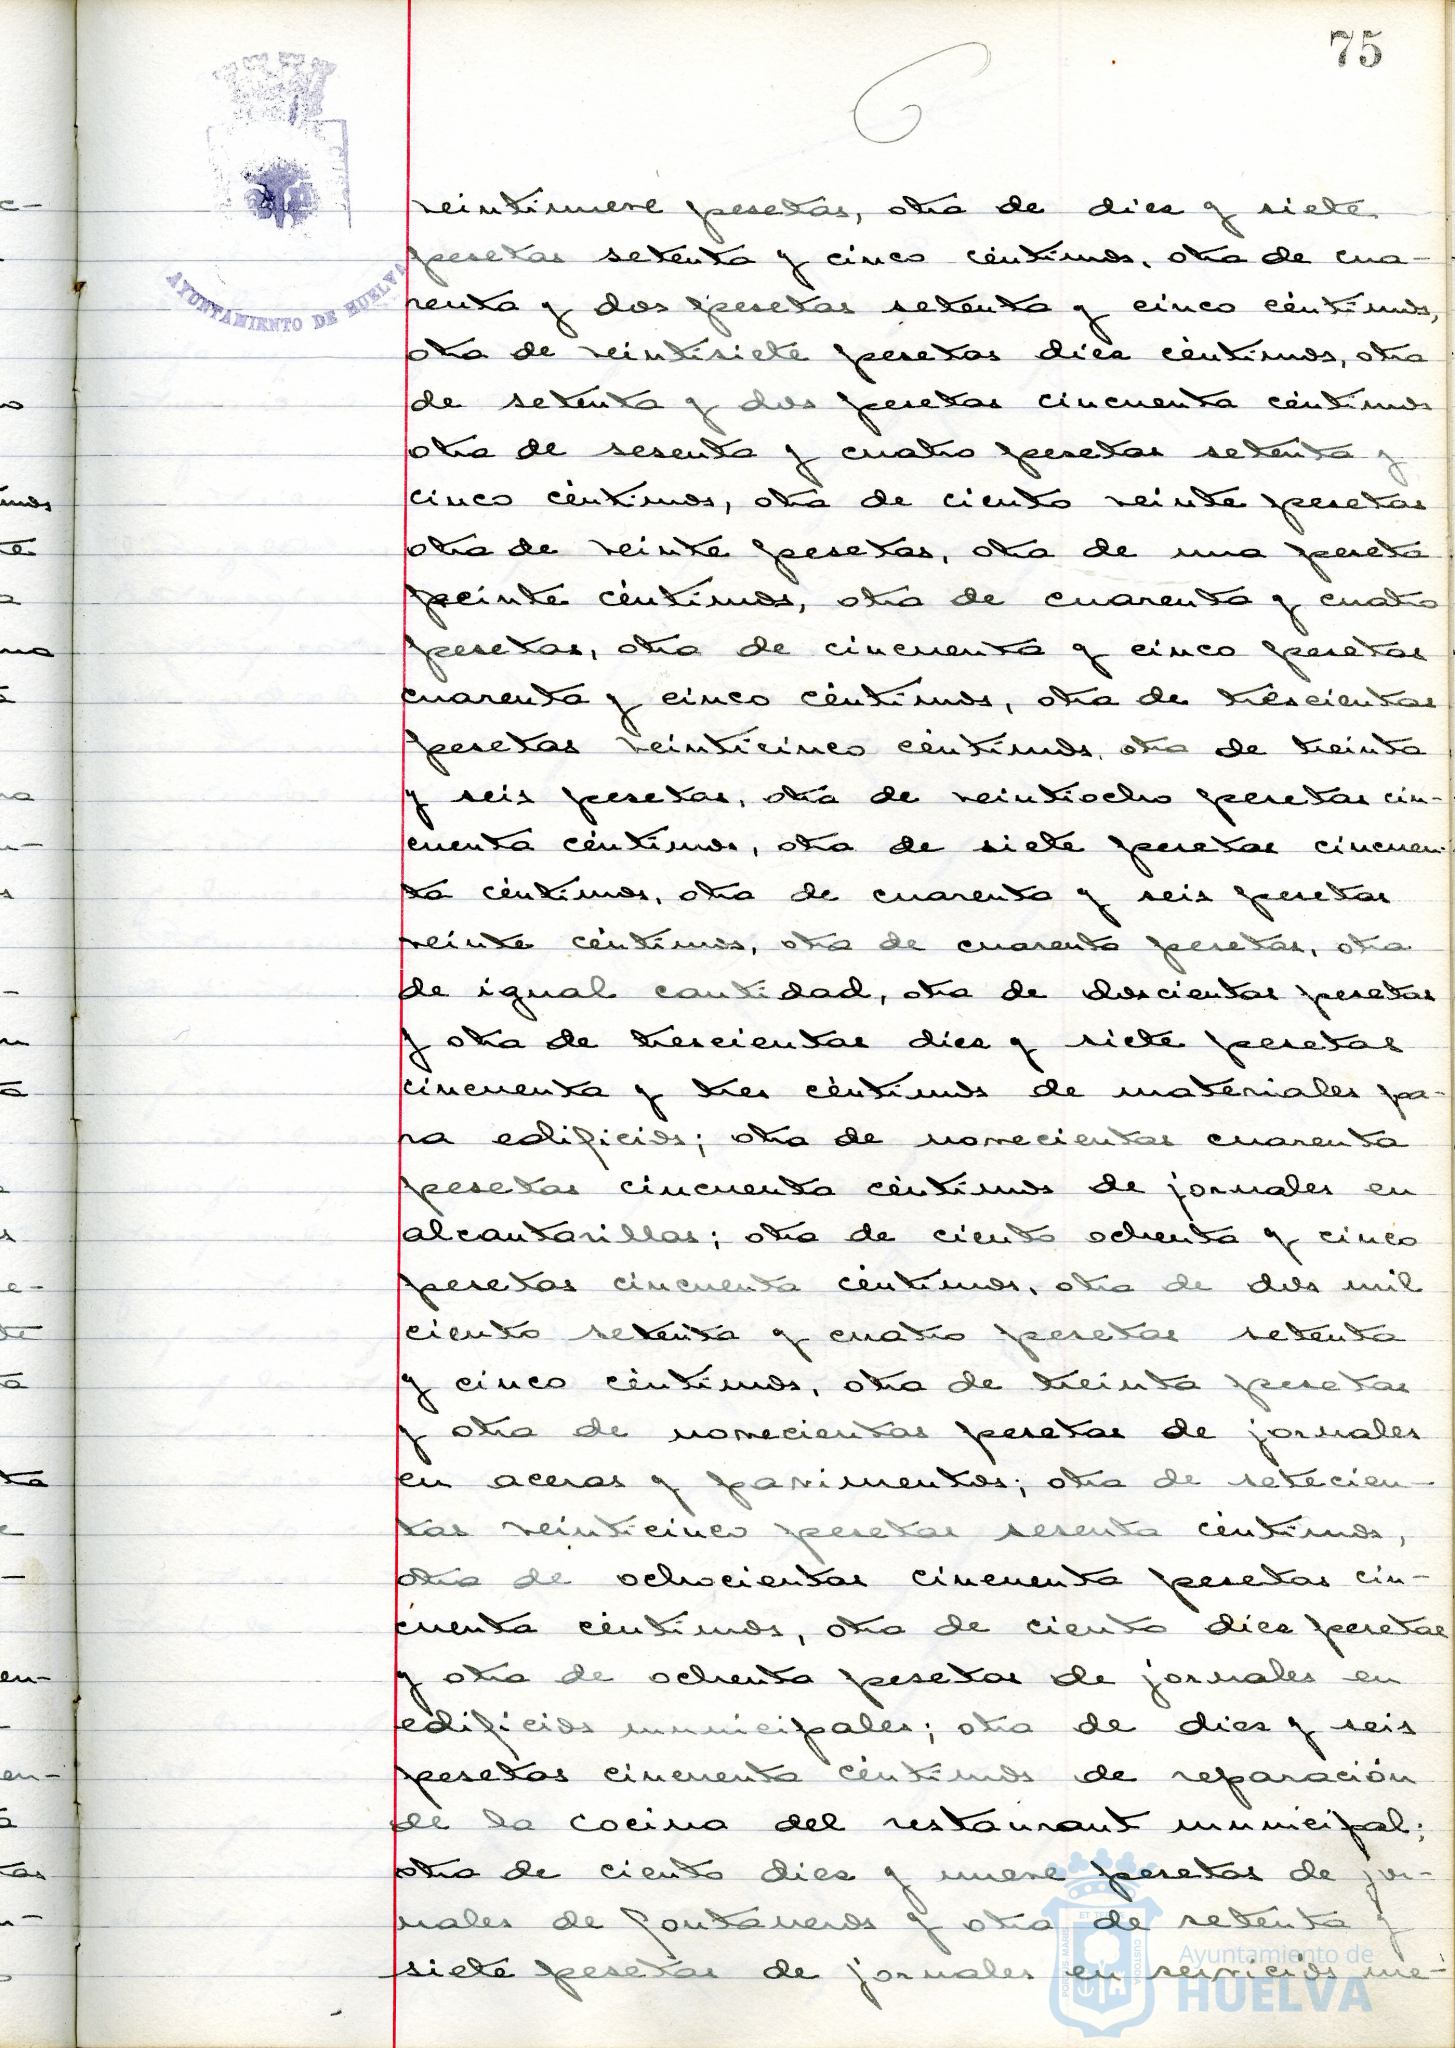 75
AYUNTAMIENTO DE HUELVA
veintinueve pesetas, otra de diez y siete
pesetas setenta y cinco céntimos, otra de cua-
renta y dos pesetas setenta y cinco céntimos,
otra de veintisiete pesetas diez céntimos, otra
de setenta y dos pesetas cincuenta céntimos
otra de sesenta y cuatro pesetas setenta y
cinco céntimos, otra de ciento veinte pesetas
otra de veinte pesetas, otra de una peseta
veinte céntimos, otra de cuarenta y cuatro
pesetas, otra de cincuenta y cinco pesetas
cuarenta y cinco céntimos, otra de trescientas
pesetas veinticinco céntimos, otra de treinta
y seis pesetas, otra de veintiocho pesetas cin-
cuenta céntimos, otra de siete pesetas cincuen-
ta céntimos, otra de cuarenta y seis pesetas
veinte céntimos, otra de cuarenta pesetas, otra
de igual cantidad, otra de doscientas pesetas
y otra de trescientas diez y siete pesetas
cincuenta y tres céntimos de materiales pa-
ra edificios; otra de novecientas cuarenta
pesetas cincuenta céntimos de jornales en
alcantarillas; otra de ciento ochenta y cinco
pesetas cincuenta céntimos, otra de dos mil
ciento setenta y cuatro pesetas setenta
y cinco céntimos, otra de treinta pesetas
y otra de novecientas pesetas de jornales
en aceras y pavimentos; otra de setecien-
tas veinticinco pesetas sesenta céntimos,
otra de ochocientas cincuenta pesetas cin-
cuenta céntimos, otra de ciento diez pesetas
y otra de ochenta pesetas de jornales en
edificios municipales; otra de diez y seis
pesetas cincuenta céntimos de reparación
de la cocina del restaurant municipal;
otra de ciento diez y nueve pesetas de jor-
nales de fontaneros y otra de setenta y
siete pesetas de jornales en servicios me-
PORTUS MARIS ET TERRE CUSTODIA
Ayuntamiento de
HUELVA